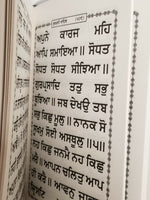 ਆਪਨੇ ਕਾਰਜ ਮਹਿ
ਆਪਿ ਸਮਾਇਆ ॥ ਸੋਧਤ
ਸੋਧਤ ਸੋਧਤ ਸੀਝਿਆ ॥
ਗੁਰਪ੍ਰਸਾਦਿ ਤਤੁ ਸਭੁ
ਬੂਝਿਆ ॥ ਜਬ ਦੇਖਉ ਤਬ
ਸਭੁ ਕਿਛੁ ਮੂਲੁ ॥ ਨਾਨਕ ਸੋ
ਸੂਖਮੁ ਸੋਈ ਅਸਥੂਲੁ ॥੫॥
ਨਹ ਕਿਛੁ ਜਨਮੈ ਨਹ ਕਿਛੁ
ਮਰੈ ॥ ਆਪਨ ਚਲਿਤੁ ਆਪ
ਹੀ ਕਰੈ ॥ ਆਵਨੁ ਜਾਵਨੁ